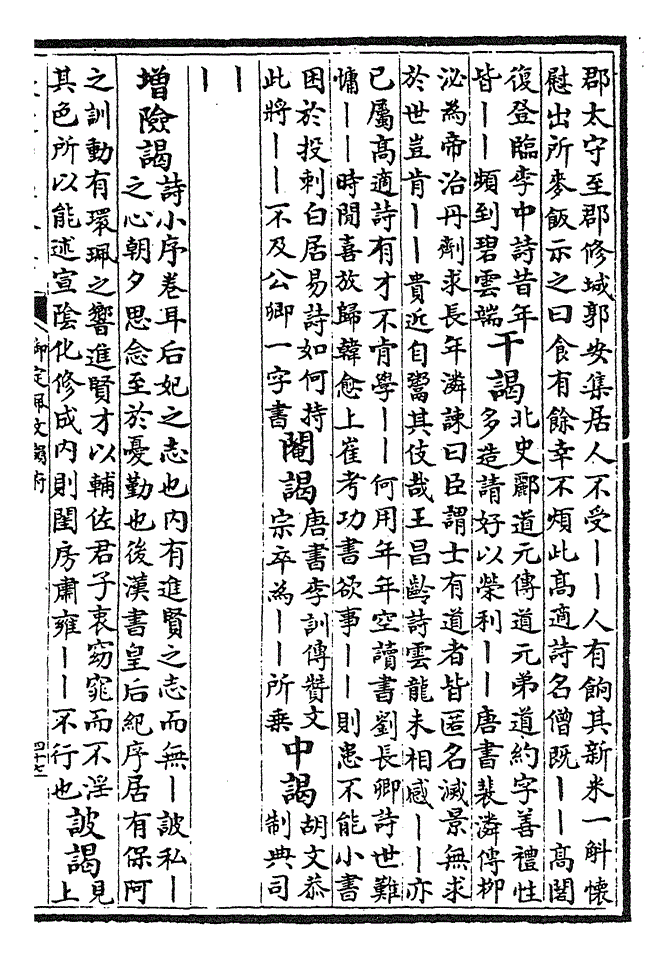 郡太守至郡修城郭安集居人不受——人有餉其新米一斛懷
慰出所麥飯示之曰食有餘幸不煩此高適詩名僧既——高閣
復登臨李中詩昔年
皆——頻到碧雲端
干謁
北史酈道元傳道元弟道約字善禮性
多造請好以榮利——唐書裴潾傳柳
泌為帝治丹劑求長年潾諫曰臣謂士有道者皆匿名滅景無求
於世豈肯——貴近自鬻其伎哉王昌齡詩雲龍未相感——亦
已屬高適詩有才不肯學——何用年年空讀書劉長卿詩世難
慵——時閒喜放歸韓愈上崔考功書欲事——則患不能小書
困於投刺白居易詩如何持
此將——不及公卿一字書
閹謁
唐書李訓傳贊文
宗卒為——所乘
中謁
胡文恭
制典司
—
—
增險謁
詩小序卷耳后妃之志也內有進賢之志而無—詖私—
之心朝夕思念至於憂勤也後漢書皇后紀序居有保阿
之訓動有環珮之響進賢才以輔佐君子哀窈窕而不淫
其色所以能述宣陰化修成內則閨房肅雍——不行也
詖謁
見
上
御定佩文韻府
四十七